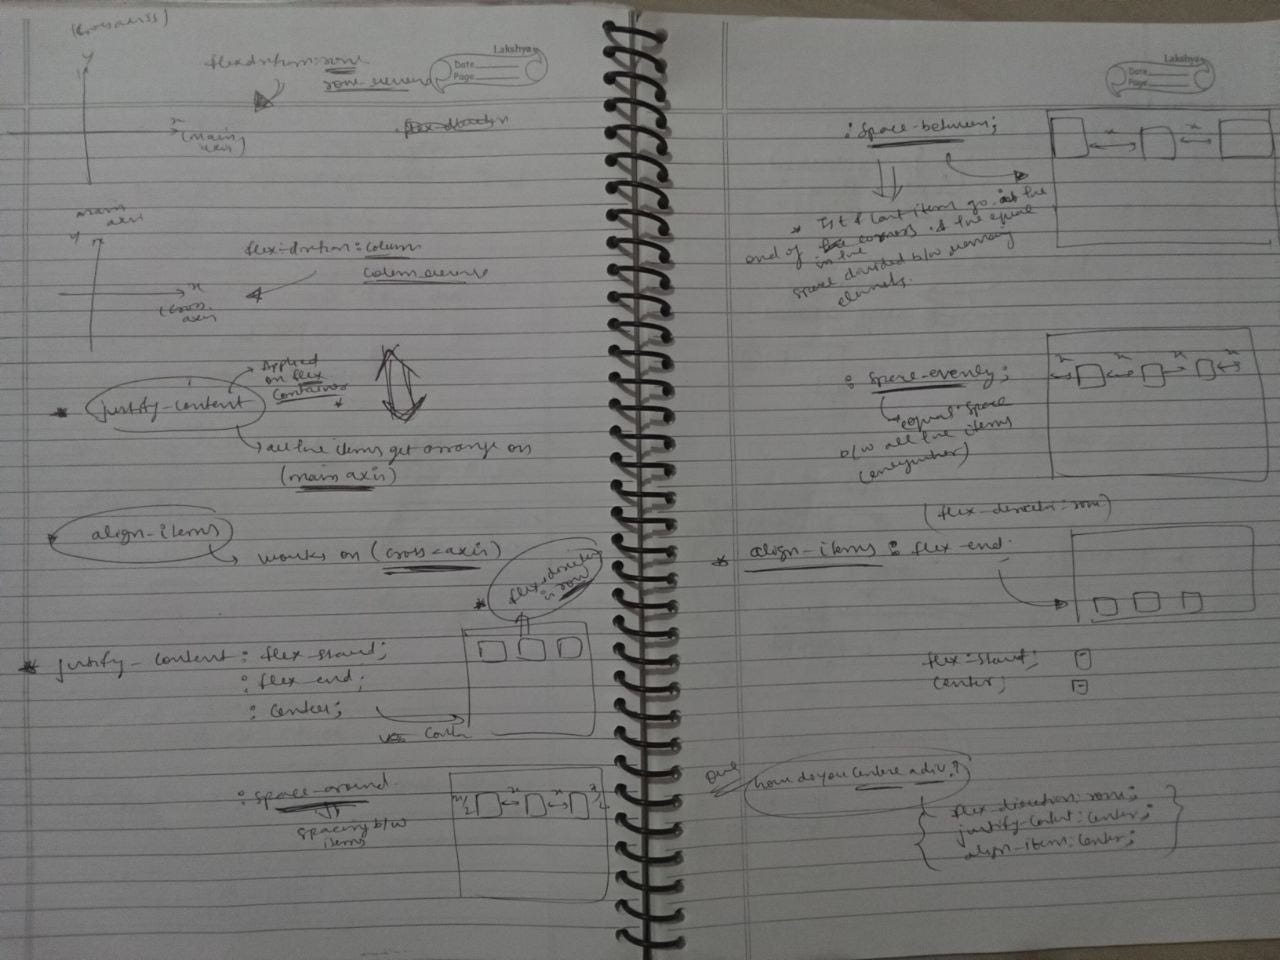 (Cross axis)
y
flex-dirtion: row
row-reverse
Lakshya
Date
Page
x
(main
axis)
main
axis
y
flex-dirtion: column
Colum reverse
x
(Cross
axis)
justify-content
Applied
on flex
Container
all the items get arrange on
(main axis)
align-items
works on (cross-axis)
flex-direction
is row
justify-content: flex-start;
: flex-end;
: center;
: space-around
spacing b/w
items
x/2 x x x/2
Lakshya
Date
Page
: space-between;
x x
1st & last item go at the
end of the corners & the equal
in the
space divided b/w remaining
elements.
: space-evenly;
x x x x
equal space
b/w all the items
(everywhere)
(flex-direction: row)
align-items : flex-end.
flex-start;
center;
Que
how do you centere a div.?
flex-direction: row;
justify-content: center;
align-item: center;